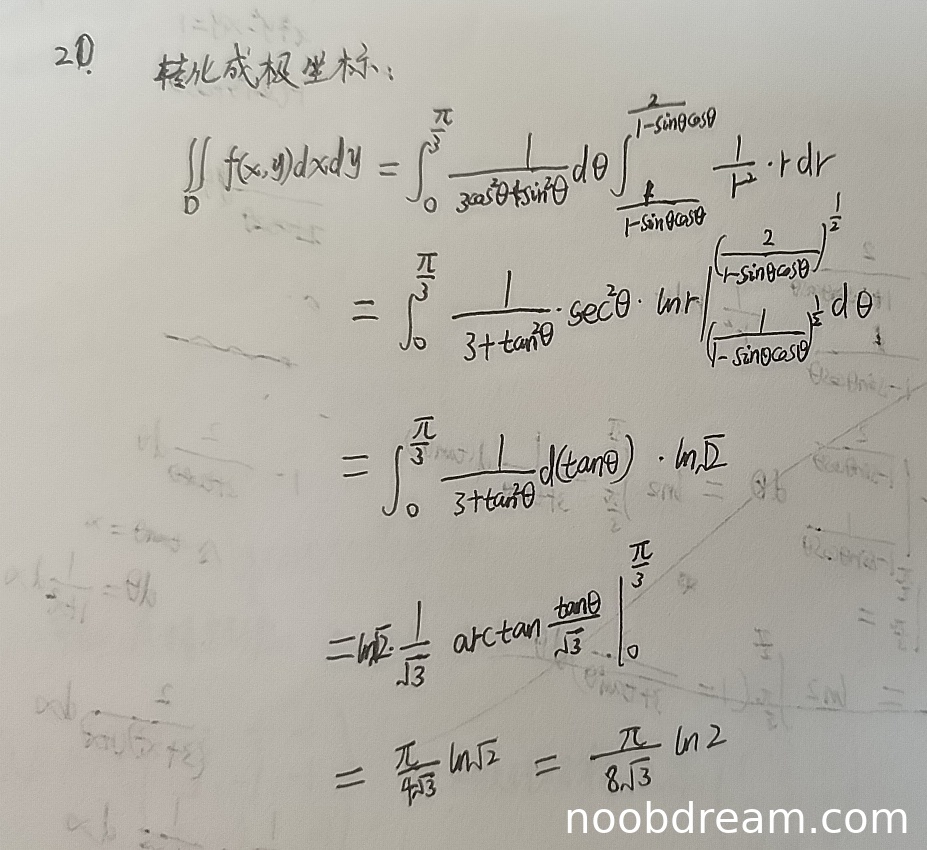 20. 转化成极坐标:
∬_D f(x,y)dxdy = ∫_0^{π/3} \frac{1}{3cos²θ+sin²θ} dθ ∫_{\frac{1}{1-sinθcosθ}}^{\frac{2}{1-sinθcosθ}} \frac{1}{r²}·rdr
= ∫_0^{π/3} \frac{1}{3+tan²θ}·sec²θ·lnr|_{(\frac{1}{1-sinθcosθ})^{\frac{1}{2}}}^{(\frac{2}{1-sinθcosθ})^{\frac{1}{2}}} dθ
= ∫_0^{π/3} \frac{1}{3+tan²θ} d(tanθ)·ln√2
= ln√2·\frac{1}{√3} arctan \frac{tanθ}{√3} |_0^{π/3}
= \frac{π}{4√3} ln√2 = \frac{π}{8√3} ln2
noobdream.com